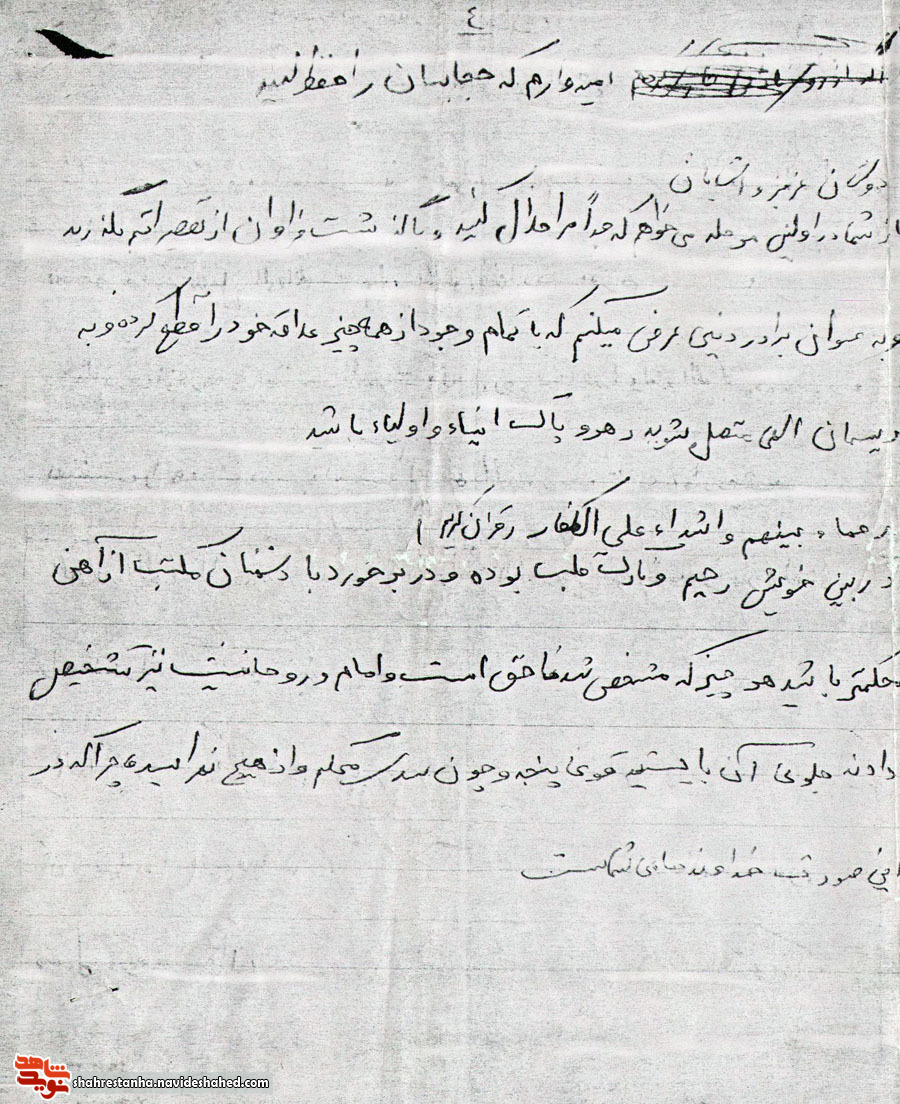 ٤
امیدوارم که حجابتان را حفظ کنید
دوستان عزیز و آشنایان
از شما در اولین مرحله می‌خواهم که جداً مرا حلال کنید و با گذشت فراوان از تقصیراتم بگذرید
و به عنوان برادر دینی عرض میکنم که با تمام وجود از همه چیز علاقه خود را قطع کرده و به
ریسمان الهی متصل شوید رهرو پاک انبیاء و اولیاء باشید
رحماء بینهم و اشداء علی الکفار (قرآن کریم)
در بین خویش رحیم و نازک قلب بوده و در برخورد با دشمنان مکتب از آهنی
محکمتر باشید هر چیز که مشخص شد ناحق است و امام و روحانیت نیز تشخیص
دادند جلوی آن بایستید قوی پنجه و چون سدی محکم و از هیچ نهراسید چرا که در
این صورت خداوند حامی شماست
شاهد
نوید
shahrestanha.navideshahed.com